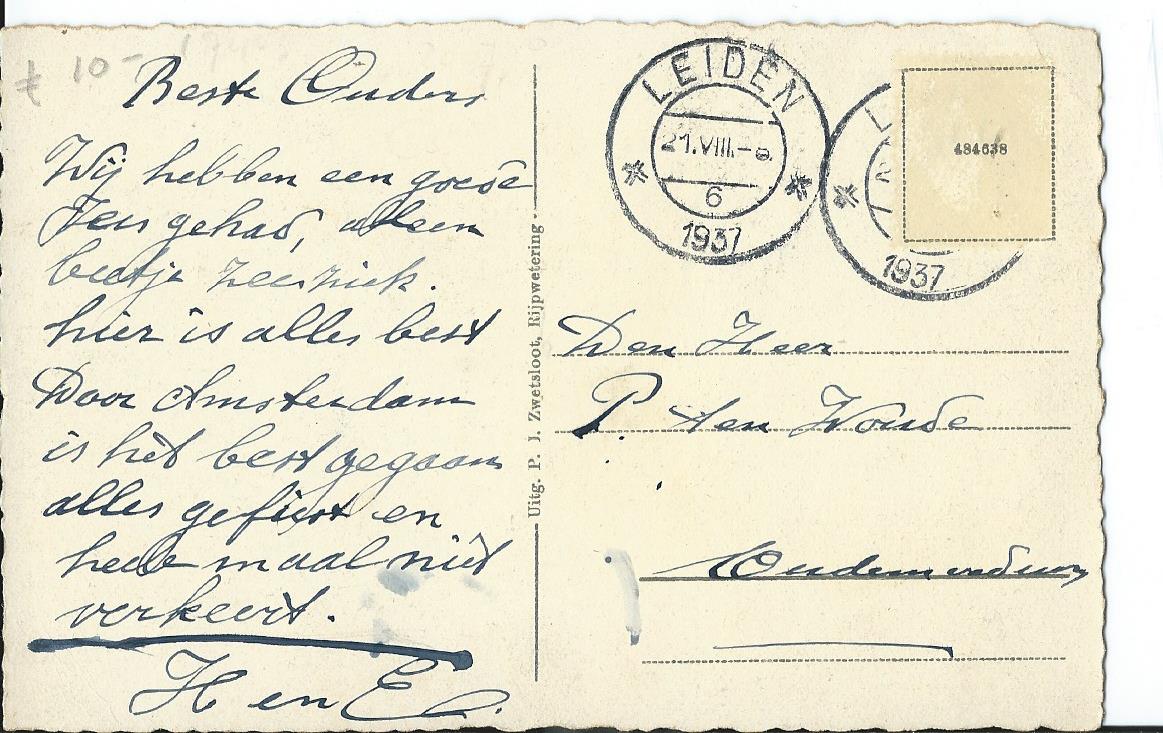 ƒ 10-
Beste Ouders
Wij hebben een goede
reis gehad, alleen
beetje zeeziek.
hier is alles best
Door Amsterdam
is het best gegaan
alles gefiest en
hele maal niet
verkeert.
H en E.
Uitg. P. J. Zwetsloot, Rijpwetering.
LEIDEN
21.VIII.-8.
6
1937
L
1937
484638
Den Heer
P. ten Woude